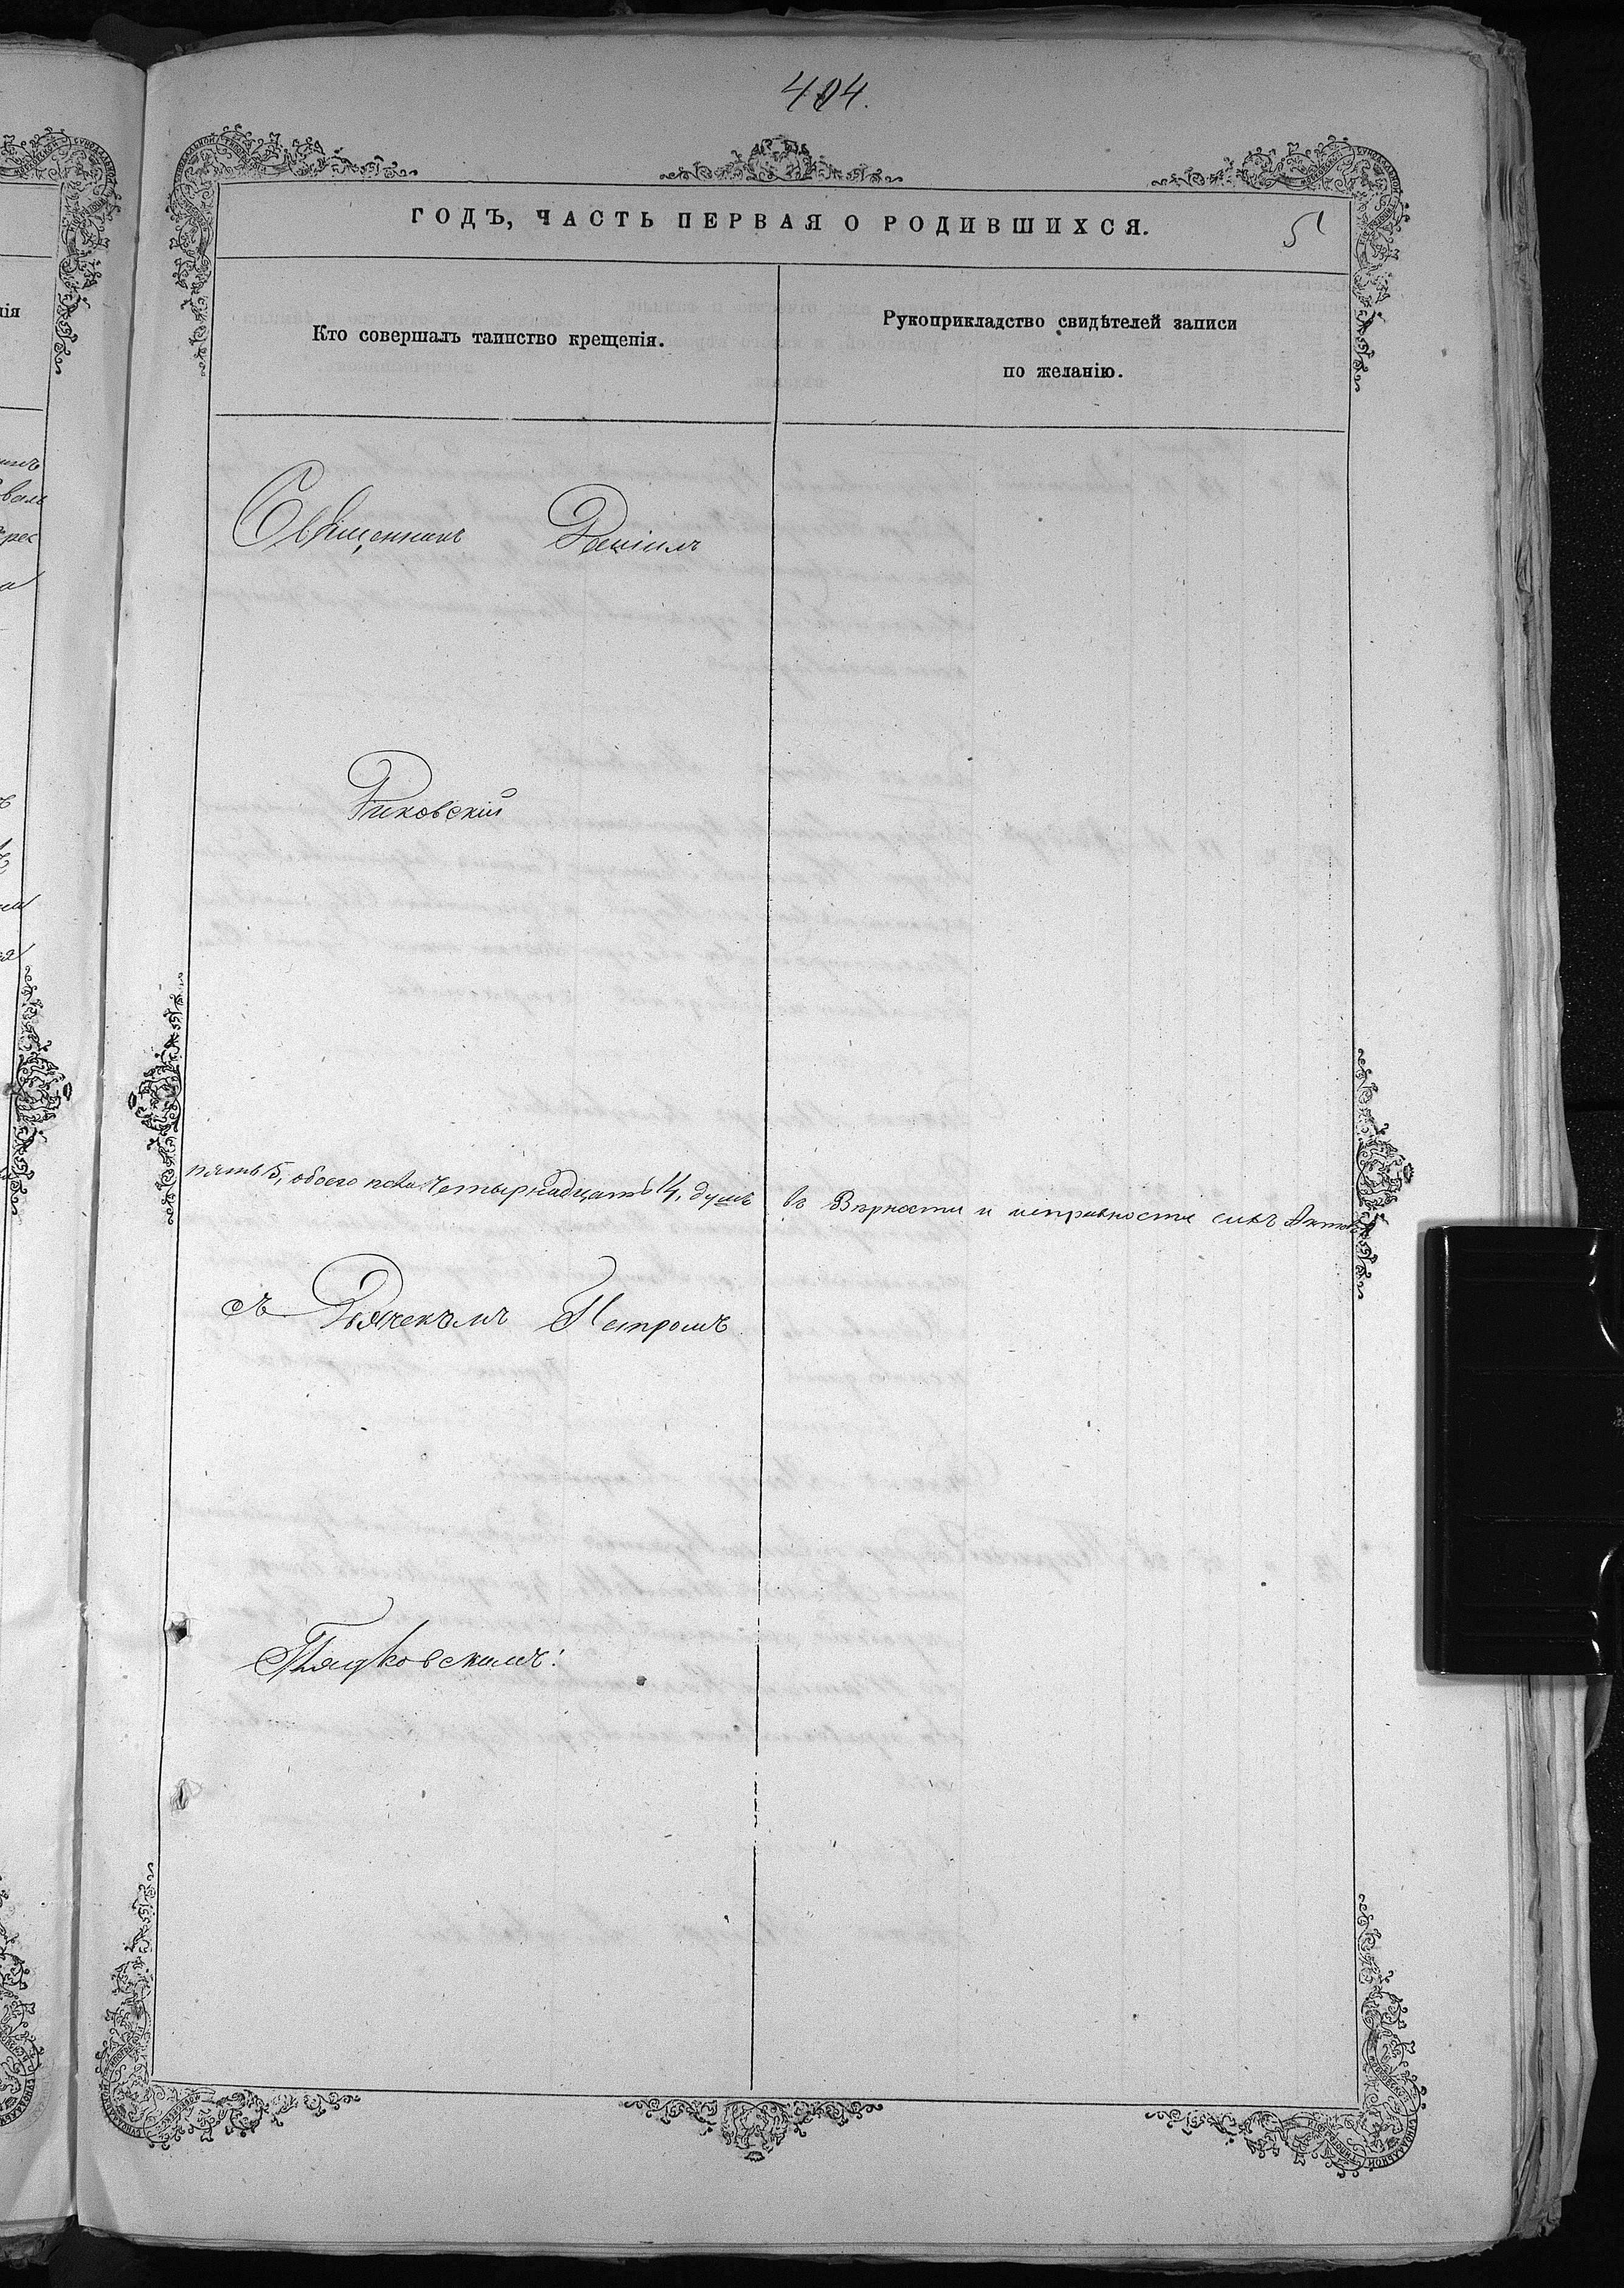 404.
ГОДЪ, ЧАСТЬ ПЕРВАЯ О РОДИВШИХСЯ.
51
Кто совершалъ таинство крещенія.
Рукоприкладство свидѣтелей записи
по желанію.
Священникъ Даніилъ
Риковскій
пять 5, обоего пола четырнадцать 14, душъ въ вѣрности и исправности сихъ Актовъ
съ Дьячекъмъ Петромъ